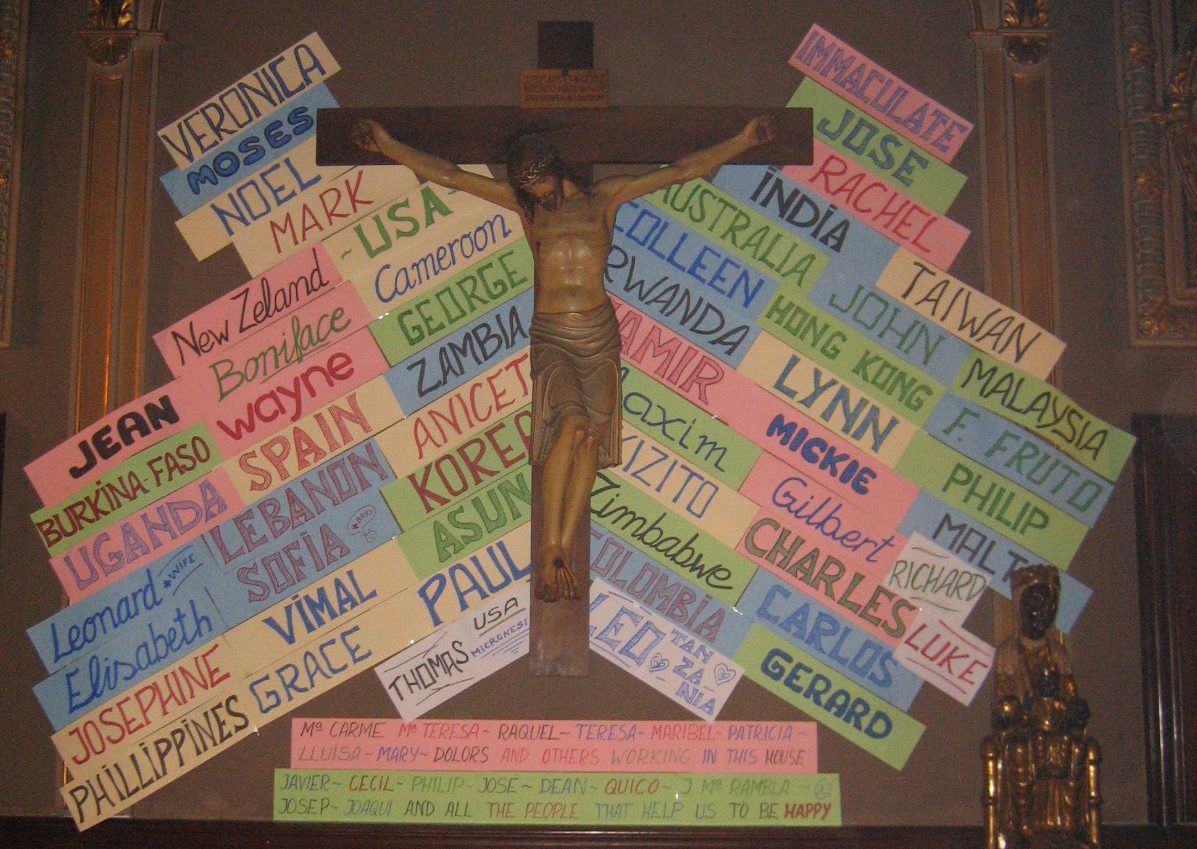 VERONICA
MOSES
NOEL
MARK
~USA
Cameroon
New Zeland
Boniface
GEORGE
ZAMBIA
JEAN
wayne
BURKINA-FASO
SPAIN
ANICET
UGANDA
LEBANON
KOREA
SOFIA + BABY
ASUN
Leonard + WIFE
Elisabeth
VIMAL
PAUL
JOSEPHINE
GRACE
PHILLIPPINES
THOMAS
USA
MICRONESI
IMMACULATE
JOSE
RACHEL
INDIA
AUSTRALIA
COLLEEN
TAIWAN
JOHN
RWANDA
HONG KONG
MALAYSIA
AMIR
LYNN
F. FRUTO
axim
MICKIE
PHILIP
KIZITO
Gilbert
MALT
RICHARD
Zimbabwe
CHARLES
LUKE
COLOMBIA
CARLOS
LEO TANZANIA
GERARD
Mª CARME Mª TERESA ~ RAQUEL ~ TERESA ~ MARIBEL ~ PATRICIA ~
LLUISA ~ MARY ~ DOLORS AND OTHERS WORKING IN THIS HOUSE
JAVIER ~ CECIL ~ PHILIP ~ JOSE ~ DEAN ~ QUICO ~ J. Mª RAMBLA ~
JOSEP ~ JOAQUI AND ALL THE PEOPLE THAT HELP US TO BE HAPPY